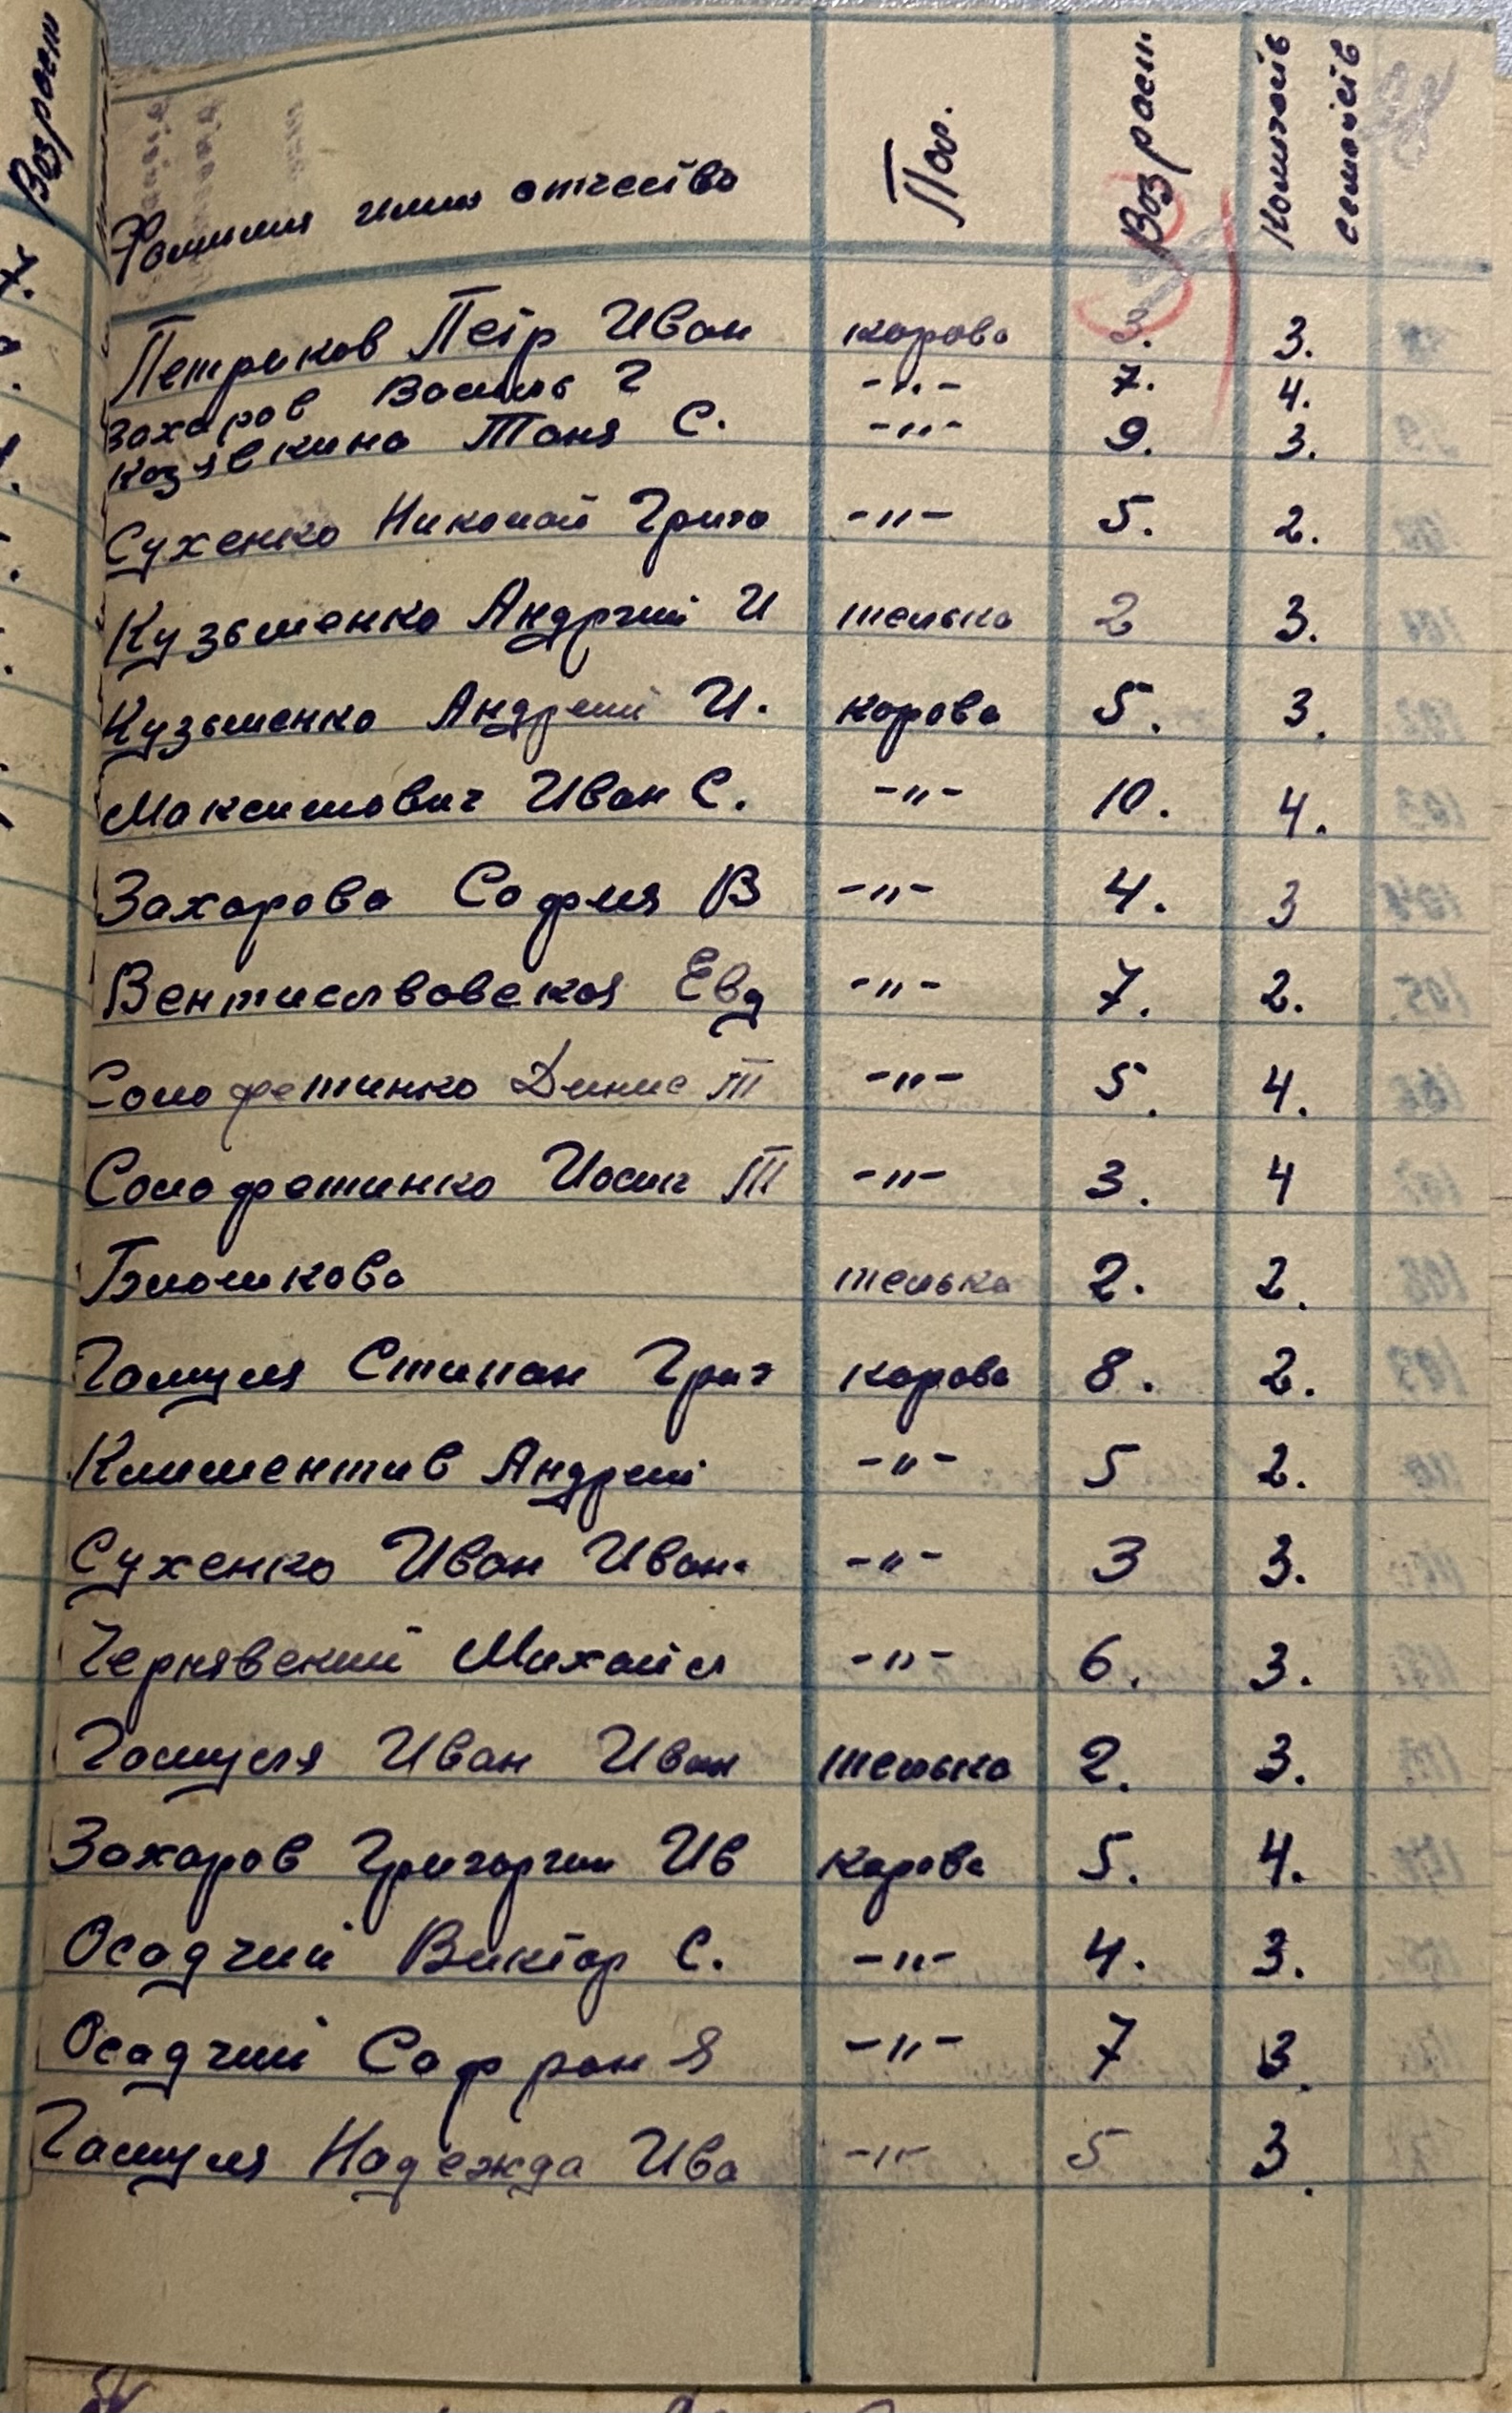 Возраст
Фамилия имия отчество Пол. Возраст Количество семейств
Петриков Петр Иван корова 3. 3.
Захаров Василь Г -"- 7. 4.
Козявкина Таня С. -"- 9. 3.
Сухенко Николай Григо -"- 5. 2.
Кузьменко Андрий И телька 2 3.
Кузьменко Андрей И. корова 5. 3.
Максимович Иван С. -"- 10. 4.
Захарова София В -"- 4. 3
Вентиславовская Евд -"- 7. 2.
Солофетинко Динис Т -"- 5. 4.
Солофетинко Иосип Т -"- 3. 4
телька 2. 2.
Гамуля Стипан Григ корова 8. 2.
Климентив Андрей -"- 5 2.
Сухенко Иван Иван. -"- 3 3.
Чернявский Михайл -"- 6. 3.
Гамуля Иван Иван телька 2. 3.
Захаров Григорий Ив корова 5. 4.
Осадчий Виктор С. -"- 4. 3.
Осадчий Софрон Я -"- 7 3.
Гамуля Надежда Ива -"- 5 3.